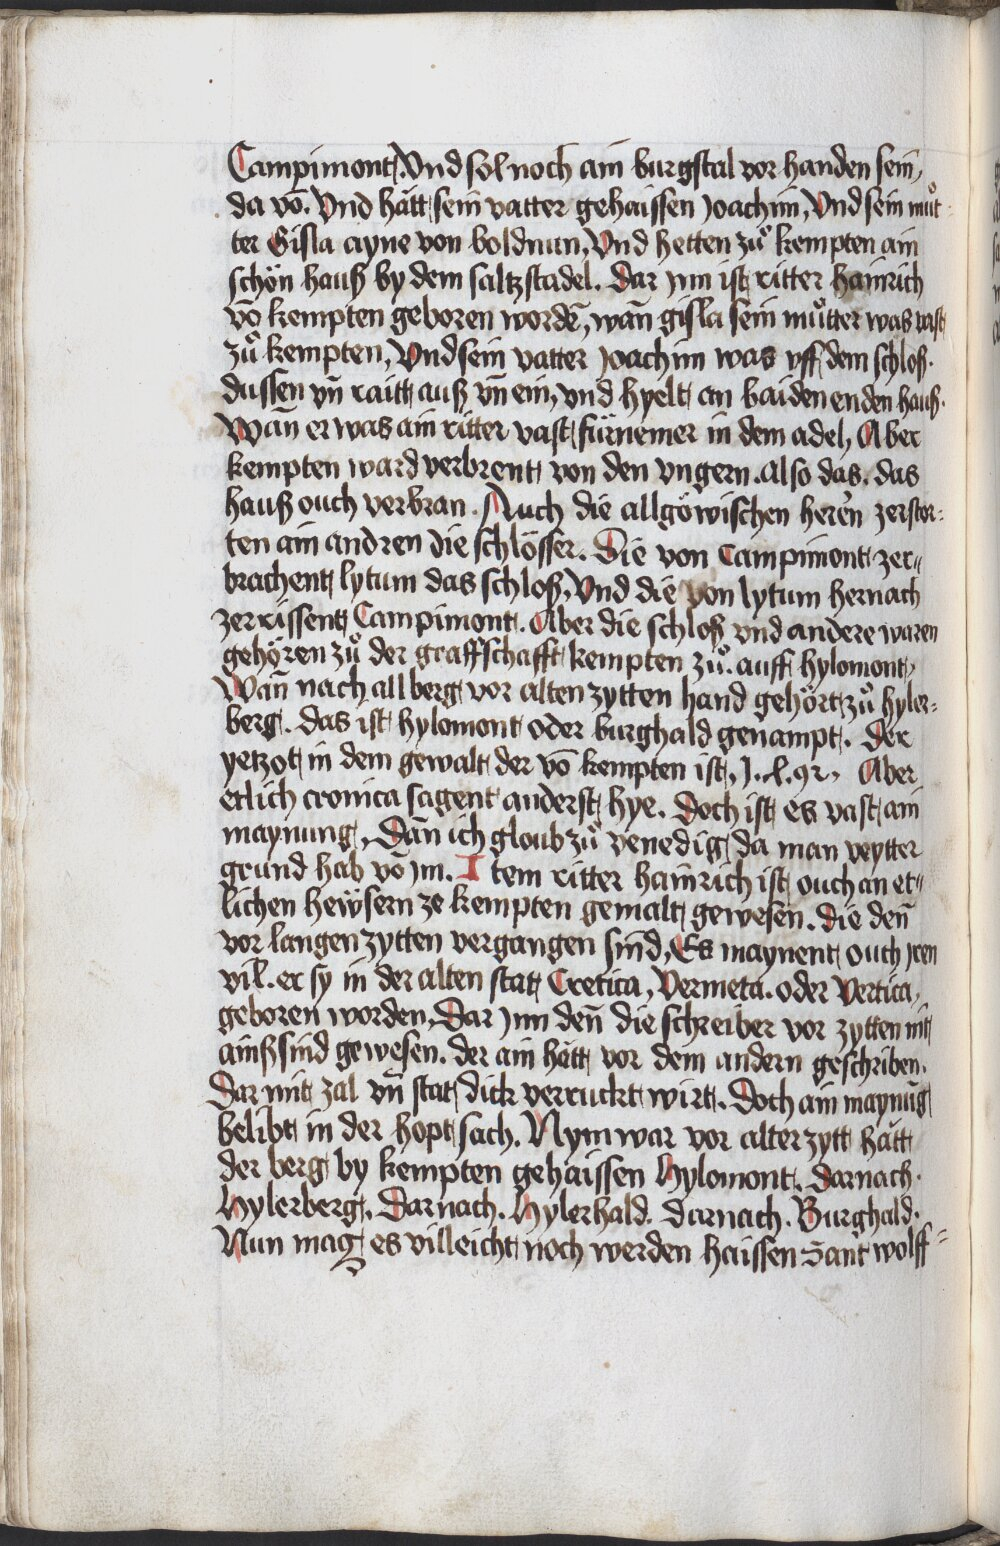 Campimont. Vnd sol noch ain burgstal vor handen sein,
da vō. Vnd hått sein vatter gehaissen Joachim, Vnd sein muͦt-
ter Gisla aigne von boldnun, Vnd hetten zuͦ kempten ain
schön hauß by dem saltzstadel. Dar jnn ist ritter hainrich
vō kempten geboren wordē, wan̄ gisla sein muͦtter was vast
zuͦ kempten, Vnd sein vatter Joachim was vff dem schloß.
dussen vn̄ raitt auß vn̄ ein, vnd hyelt an baiden enden hauß.
Wan̄ er was ain ritter vast fürnemer in dem adel, Aber
kempten ward verbrent von den vngern. also das. das
hauß ouch verbran. Auch die allgöwischen heren zerstor-
ten ain andren die schlösser. Die von Campimont zer-
brachent lytum das schloß, Vnd die von lytum hernach
zerrissent Campimont. Aber die schloß vnd andere waren
gehören zuͦ der graffschafft kempten zuͦ. auff hylomont,
Wan̄ nach all berg vor alten zytten hand gehört zuͦ hyler-
berg. das ist hylomont oder burghald genampt. Der
yetzot in dem gewalt der vō kempten ist, Aber
etlich cronica sagent anderst hye. Doch ist es vast ain
maynung, Dan̄ ich gloub zuͦ venedig da man veytter
grund hab vō jm. Item ritter hainrich ist ouch an et-
lichen hewsern ze kempten gemalt gewesen. die den̄
vor langen zytten vergangen sind, Es maynent ouch jren
vil. er sy in der alten stat Cretica, Vermeta. oder Vertica,
geboren worden, Dar jnn den̄ die schreiber vor zytten nit
ainß sind gewesen. der ain hått vor dem andern geschriben.
Dar mit zal vn̄ stat dick verruckt wirt. Doch ain maynūg
belibt in der hopt sach. Nym war vor alter zytt hått
der berg by kempten gehaissen Hylomont. darnach.
Hylerberg. Darnach. Hylerhald. darnach. Burghald.
Nun mag es villeicht noch werden haissen Sant wolff-